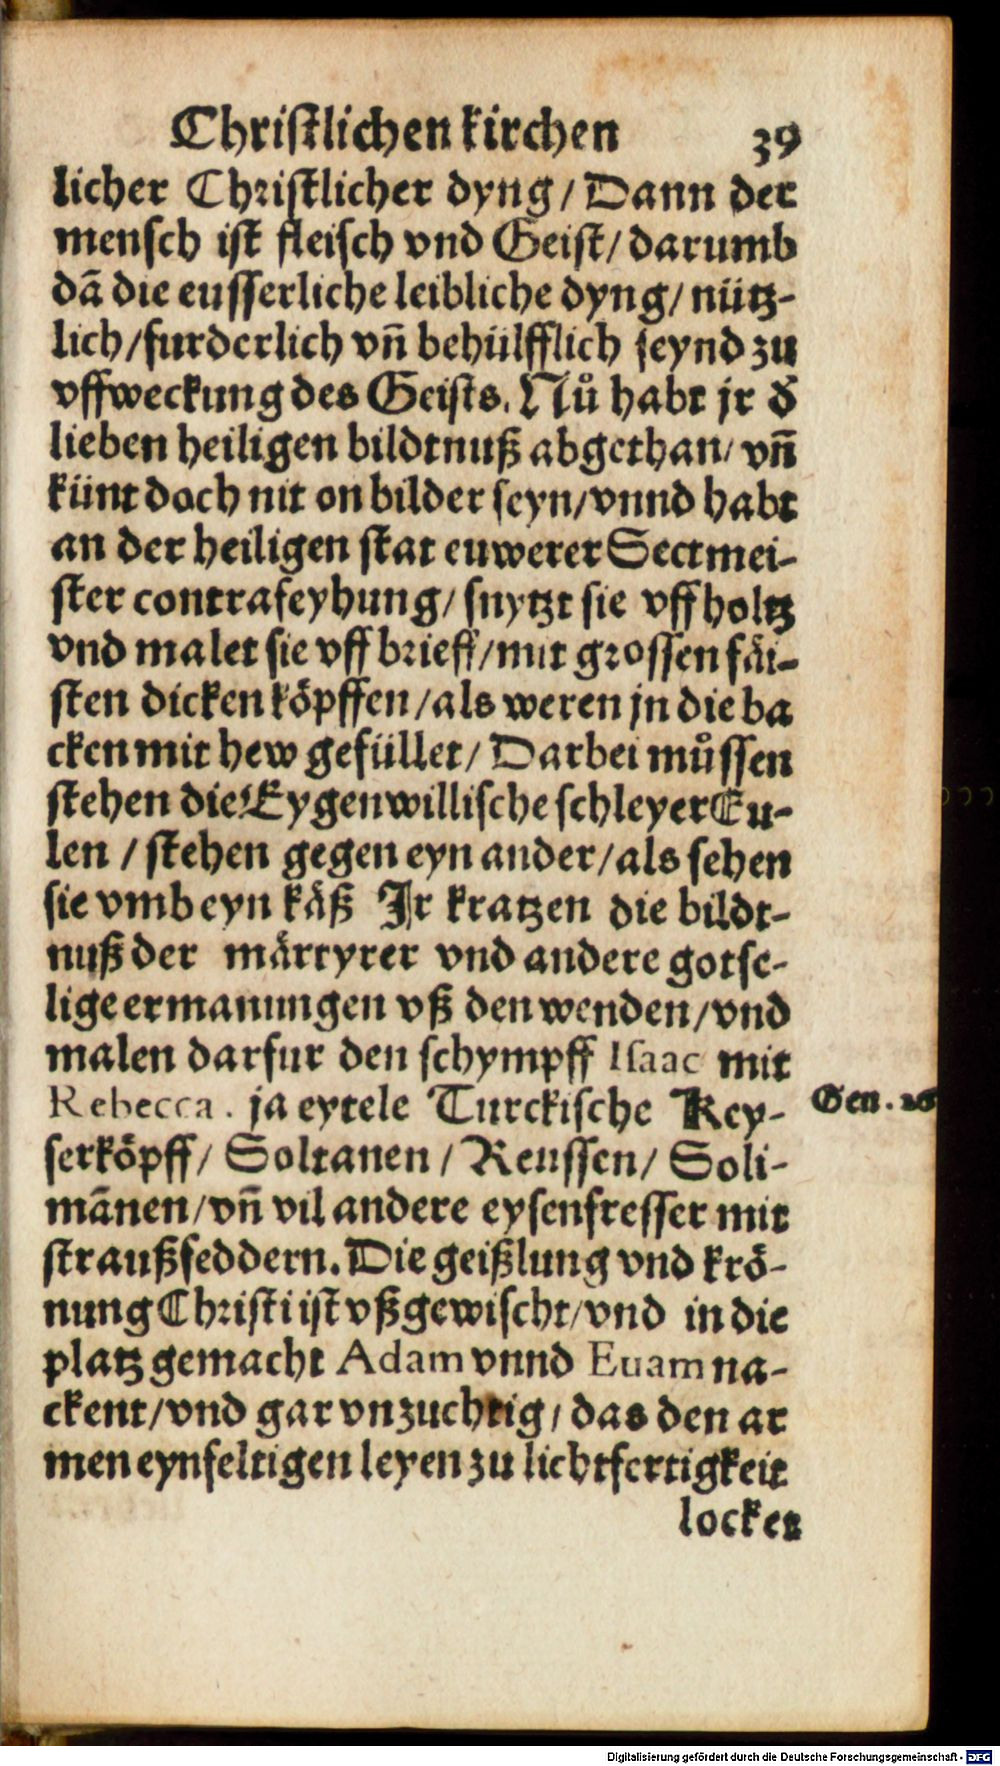 Christlichen kirchen 39
licher Christlicher dyng / Dann der
mensch ist fleisch vnd Geist / darumb
dã die eusserliche leibliche dyng / nütz-
lich / furderlich vn̄ behülfflich seynd zu
vffweckung des Geists. Nů habt jr d̕
lieben heiligen bildtnuß abgethan / vn̄
künt doch nit on bilder seyn / vnnd habt
an der heiligen stat euwerer Sectmei-
ster contrafeyhung / snytzt sie vff holtz
vnd malet sie vff brieff / mit grossen fäi-
sten dicken köpffen / als weren jn die ba
cken mit hew gefüllet / Darbei můssen
stehen die Eygenwillische schleyer Eu-
len / stehen gegen eyn ander / als sehen
sie vmb eyn käß Jr kratzen die bildt-
nuß der märtyrer vnd andere gotse-
lige ermanungen vß den wenden / vnd
malen darfur den schympff Isaac mit
Rebecca. ja eytele Turckische Key-
Gen. 26
serköpff / Soltanen / Reussen / Soli-
mãnen / vn̄ vil andere eysenfresser mit
straußfeddern. Die geißlung vnd krö-
nung Christi ist vßgewischt / vnd in die
platz gemacht Adam vnnd Euam na-
ckent / vnd gar vnzuchtig / das den ar
men eynfeltigen leyen zu lichtfertigkeit
locket
Digitalisierung gefördert durch die Deutsche Forschungsgemeinschaft - DFG